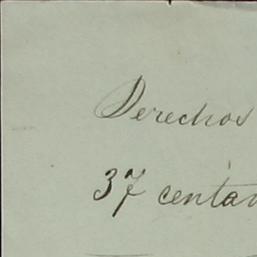 Derechos
37 centav